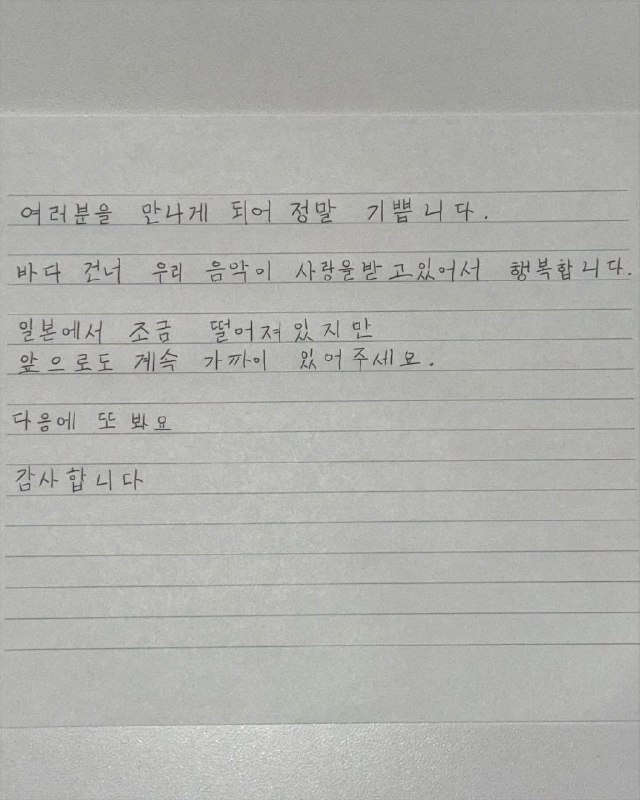 여러분을 만나게 되어 정말 기쁩니다.
바다 건너 우리 음악이 사랑을받고있어서 행복합니다.
일본에서 조금 떨어져있지만
앞으로도 계속 가까이 있어주세요.
다음에 또 봐요
감사합니다